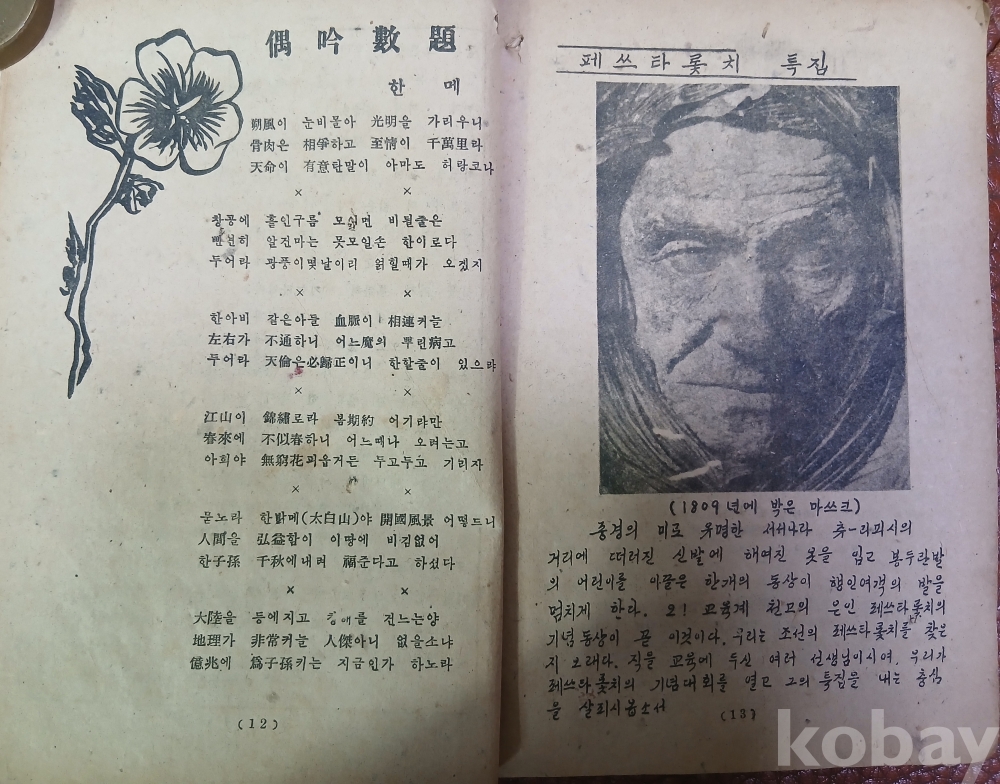 偶吟數題
한메
朔風이 눈비몰아 光明을 가리우니
骨肉은 相爭하고 至情이 千萬里라
天命이 有意탄말이 아마도 허랑코나
× ×
창공에 흘인구름 모이면 비될줄은
뻔년히 알건마는 못모일손 한이로다
두어라 광풍이몇날이리 얽힐때가 오겠지
× ×
한아비 같은아들 血脈이 相連커늘
左右가 不通하니 어느魔의 뿌린病고
두어라 天倫은必歸正이니 한할줄이 있으랴
× ×
江山이 錦繡로라 봄期約 어기랴만
春來에 不似春하니 어느때나 오려는고
아희야 無窮花피읍거든 두고두고 기리자
× ×
묻노라 한밝메(太白山)야 開國風景 어떻드니
人間을 弘益함이 이땅에 비김없어
한子孫 千秋에내려 福준다고 하섰다
× ×
大陸을 등에지고 를 건느는양
地理가 非常커늘 人傑아니 없을소냐
億兆에 爲子孫키는 지금인가 하노라
(12)
페쓰타롯치 특집
(1809년에 박은 마쓰크)
풍경의 미로 유명한 서서나라 츄-리피시의
거리에 떠러진 신발에 해여진 옷을 입고 봉두란발
의 어린이를 이끌은 한개의 동상이 행인여객의 발을
멈치게 한다. 오! 교육계 천고의 은인 페쓰타롯치의
기념동상이 곧 이것이다. 우리는 조선의 페쓰타롯치를 찾은
지 오래다. 직을 교육에 두신 여러 선생님이시여, 우리가
페쓰타롯치의 기념대회를 열고 그의 특집을 내는 충심
을 살피시옵소서
(13)
kobay